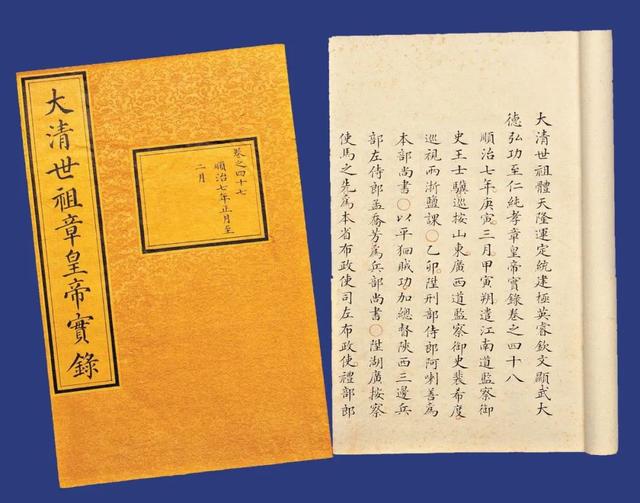 大清世祖章皇帝實錄
卷之四十七
順治七年正月至
二月
大清世祖體天隆運定統建極英睿欽文顯武大
德弘功至仁純孝章皇帝實錄卷之四十八
順治七年庚寅○三月甲寅朔遣江南道監察御
史王士驥巡按山東廣西道監察御史裴希度
巡視兩浙鹽課○乙卯陞刑部侍郎阿喇善爲
本部尚書○以平賊功加總督陝西三邊兵
部左侍郎孟喬芳爲兵部尚書○陞湖廣按察
使馬之先爲本省布政使司左布政使禮部郎